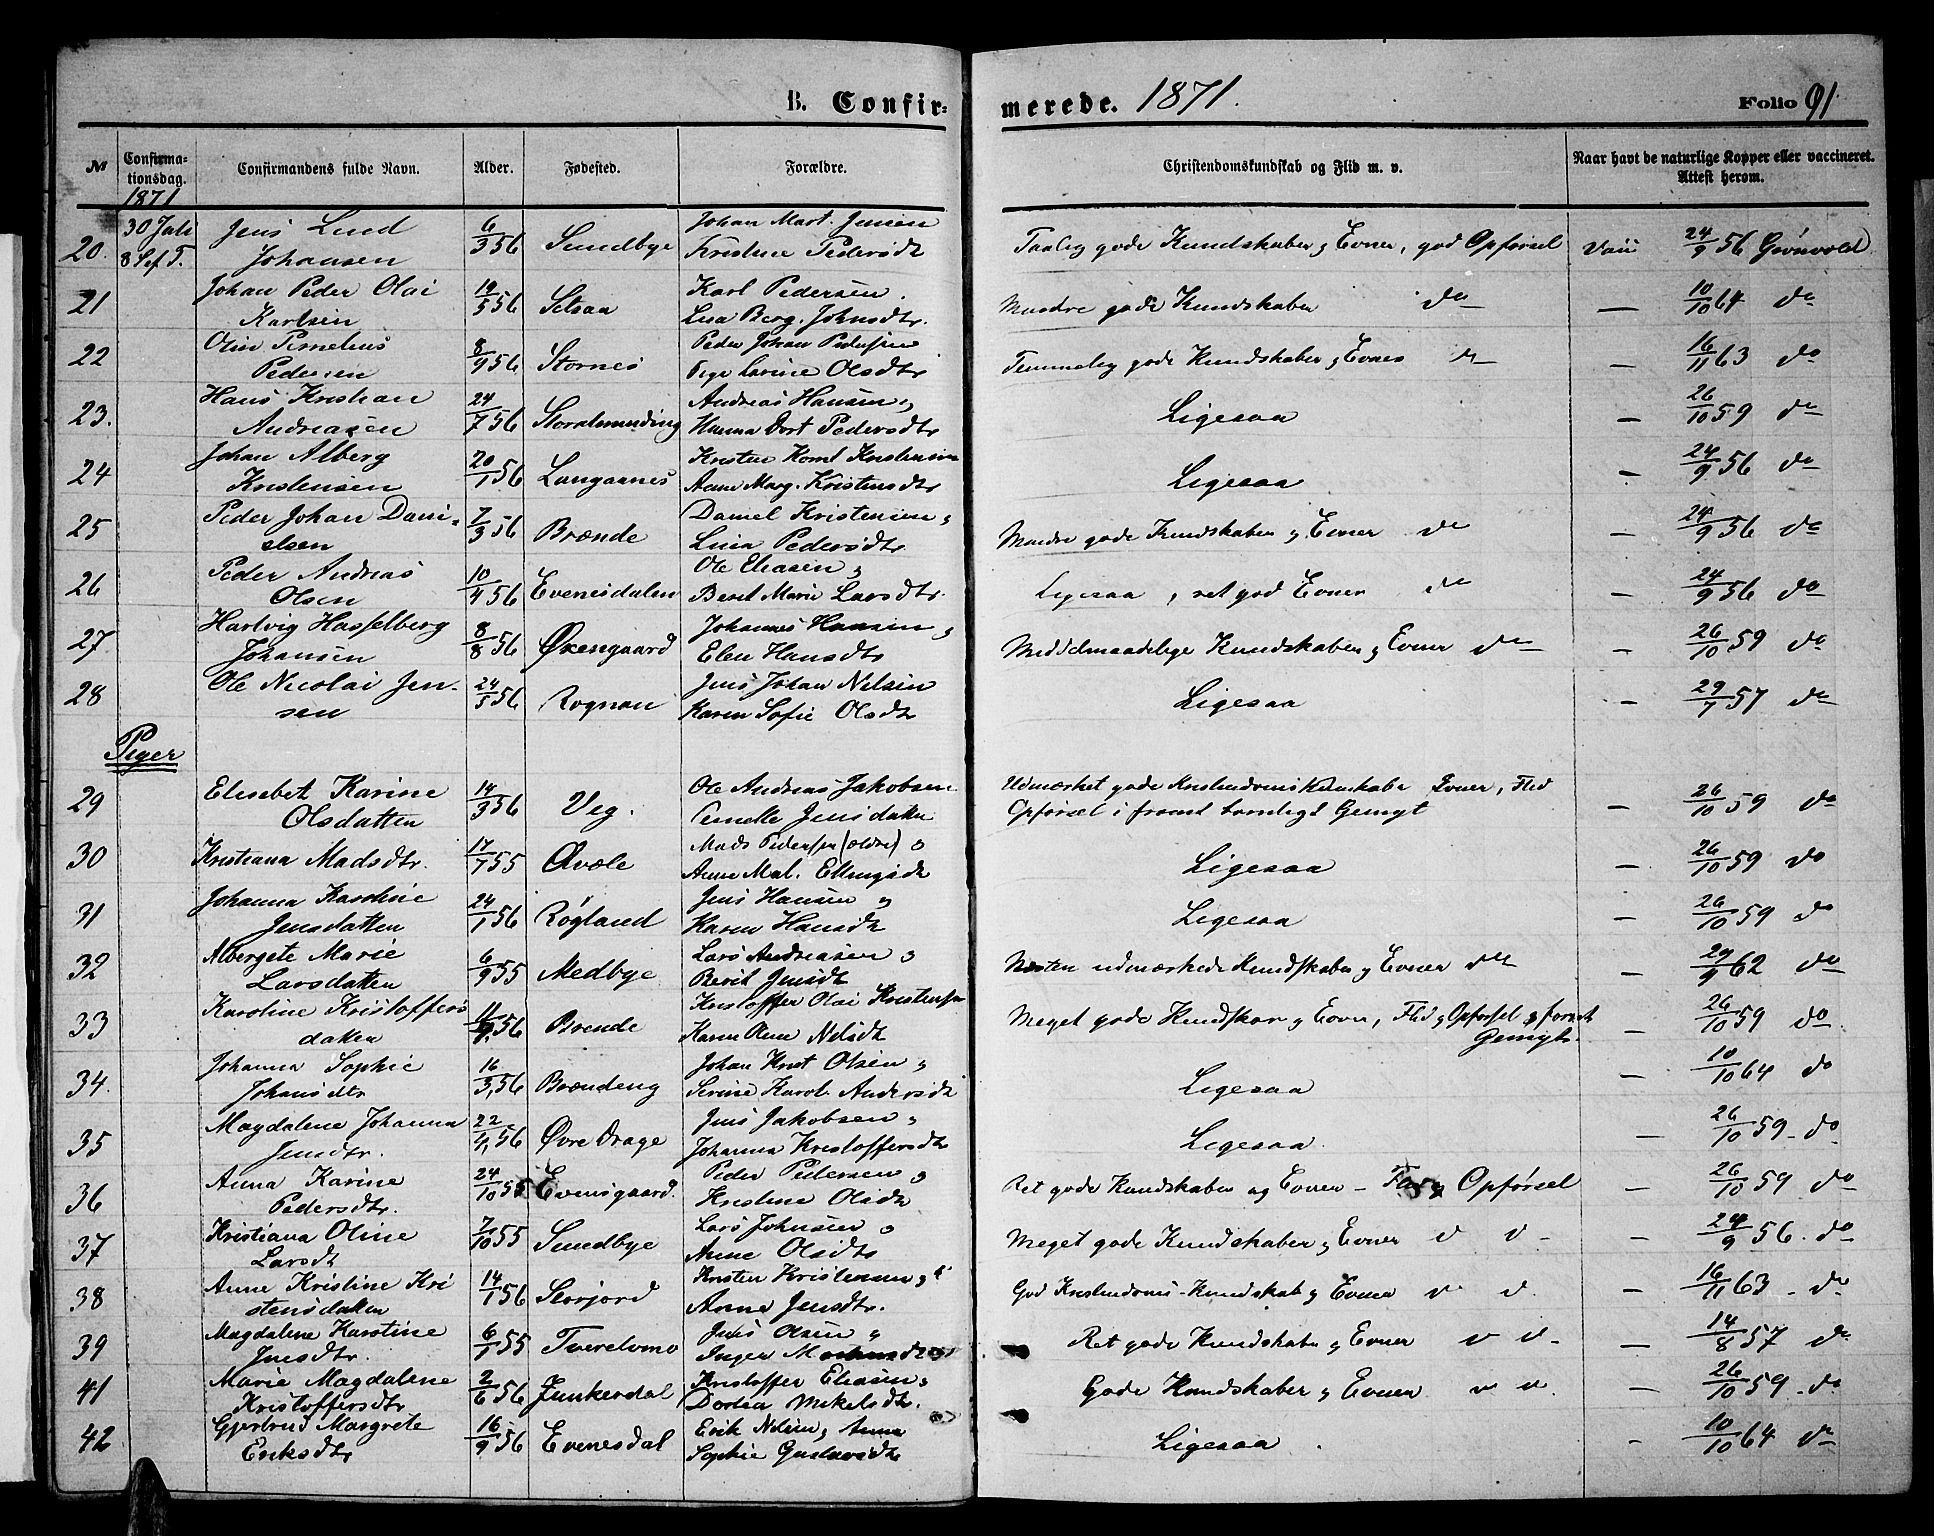 B. Confirmerede. 1871. Folio 91
№ Confirmationsdag. Confirmandens fulde Navn. Alder. Fødested. Forældre. Christendomskundskab og Flid m. v. Naar havt de naturlige Kopper eller vaccineret. Attest herom.
1871
20. 30 Juli Jens Lund 6/3 56 Sundbye Johan Mart. Jensen Taalig gode Kundskaber og Evner, god Opførsel Vacc 24/9 56 Grønvold
8 Sept. Johansen Kristine Pedersdtr
21 Johan Peder Olai 19/5 56 Setsaa Karl Pedersen Mindre gode Kundskaber do — 10/10 64 do
Karlsen Lisa Berg. Johnsdtr.
22 Olin Pernelius 8/9 56 Stornes Peder Johan Pedersen Temmelig gode Kundskaber og Evner do — 16/11 63 do
Pedersen Larine Olsdtr
23. Hans Kristian 24/7 56 Storalmunding Andreas Hansen Ligesaa — 26/10 59 do
Andreasen Hanna Dort Pedersdtr
24 Johan Alberg 20/1 56 Langaanes Kristen Kornl Kristensen Ligesaa — 24/9 56 do
Kristensen Anne Marg. Kristensdtr
25 Peder Johan Dani- 7/3 56 Brænde Daniel Kristensen Mindre gode Kundskaber og Evner do — 24/9 56 do
elsen Lina Pedersdtr
26 Peder Andreas 10/4 56 Evenesdalen Ole Eliasen Ligesaa, ret god Evner do — 24/9 56 do
Olsen Berit Marie Larsdtr.
27 Hartvig Hasselberg 8/8 56 Øxengaard Johannes Hansen Middelmaadelige Kundskaber og Evner do — 26/10 59 do
Johansen Elen Hansdtr
28 Ole Nicolai Jen- 24/5 56 Rognan Jens Johan Nilsen Ligesaa — 29/7 57 do
sen Karen Sofie Olsdtr
Piger
29 Elisebet Karine 14/3 56 Veg. Ole Andreas Jakobsen Udmærket gode Kristendomskundskaber Evner, Flid — 26/10 59 do
Olsdatter Jensdatter Opførsel i fromt barnligt Gemyt
30 Kristiana Madsdtr. 17/7 55 Qvæle Mads Pedersen (ældre) Ligesaa — 26/10 59 do
Anne Mal. Ellingsdtr
31 Johanna Karoline 24/1 56 Røgland Jens Hansen Ligesaa — 26/10 59 do
Jensdatter Karen Hansdtr
32 Albergete Marie 6/9 55 Medbye Lars Andreasen Næsten udmærkede Kundskaber og Evner do — 29/9 62 do
Larsdatter Berit Jensdtr
33 Karoline Kristoffers 56 Brende Kristoffer Olai Kristensen Meget gode Kundskab og Evner, Flid og Opførsel og fromt — 26/10 59 do
datter Karen Nilsdtr Gemyt.
34. Johanna Sophie 16/3 56 Brændeng Johan Krist Olsen Ligesaa — 10/10 64 do
Johansdtr Serine Karol. Andersdtr
35 Magdalene Johanna 22/4 56 Øvre Drage Jens Jakobsen Ligesaa. — 26/10 59 do
Jensdtr. Johanna Kristoffersdtr
36 Anna Karine 24/10 55 Evensgaard. Peder Pedersen Ret gode Kundskaber og Evner – Flid og Opførsel — 26/10 59 do
Pedersdtr. Kristine Olsdtr
37 Kristiana Oline 7/10 55 Sundbye Lars Johnsen Meget gode Kundskaber og Evner — 24/9 56. do
Larsdtr Anne Olsdtr
38 Anne Kristine Kri 14/1 56 Storjord Kristen Kristensen God Kristendoms-Kundskab og Evner — 16/11 63 do
stensdatter Anne Jensdtr.
39 Magdalene Karoline 6/1 55 Tverelvmo Jens Olsen Ret gode Kundskaber og Evner — 14/8 57 do
Jensdtr. Inger
41 Marie Magdalene 2/6 56 Junkerdal Kristoffer Eliasen Gode Kundskaber og Evner — 26/10 59 do
Kristoffersdtr Dortea Mikelsdtr.
42 Gjertrud Margrete 16/9 56 Evenesdal Erik Nilsen, Anna Ligesaa — 10/10 64 do
Eriksdtr Sophie Gustavsdtr